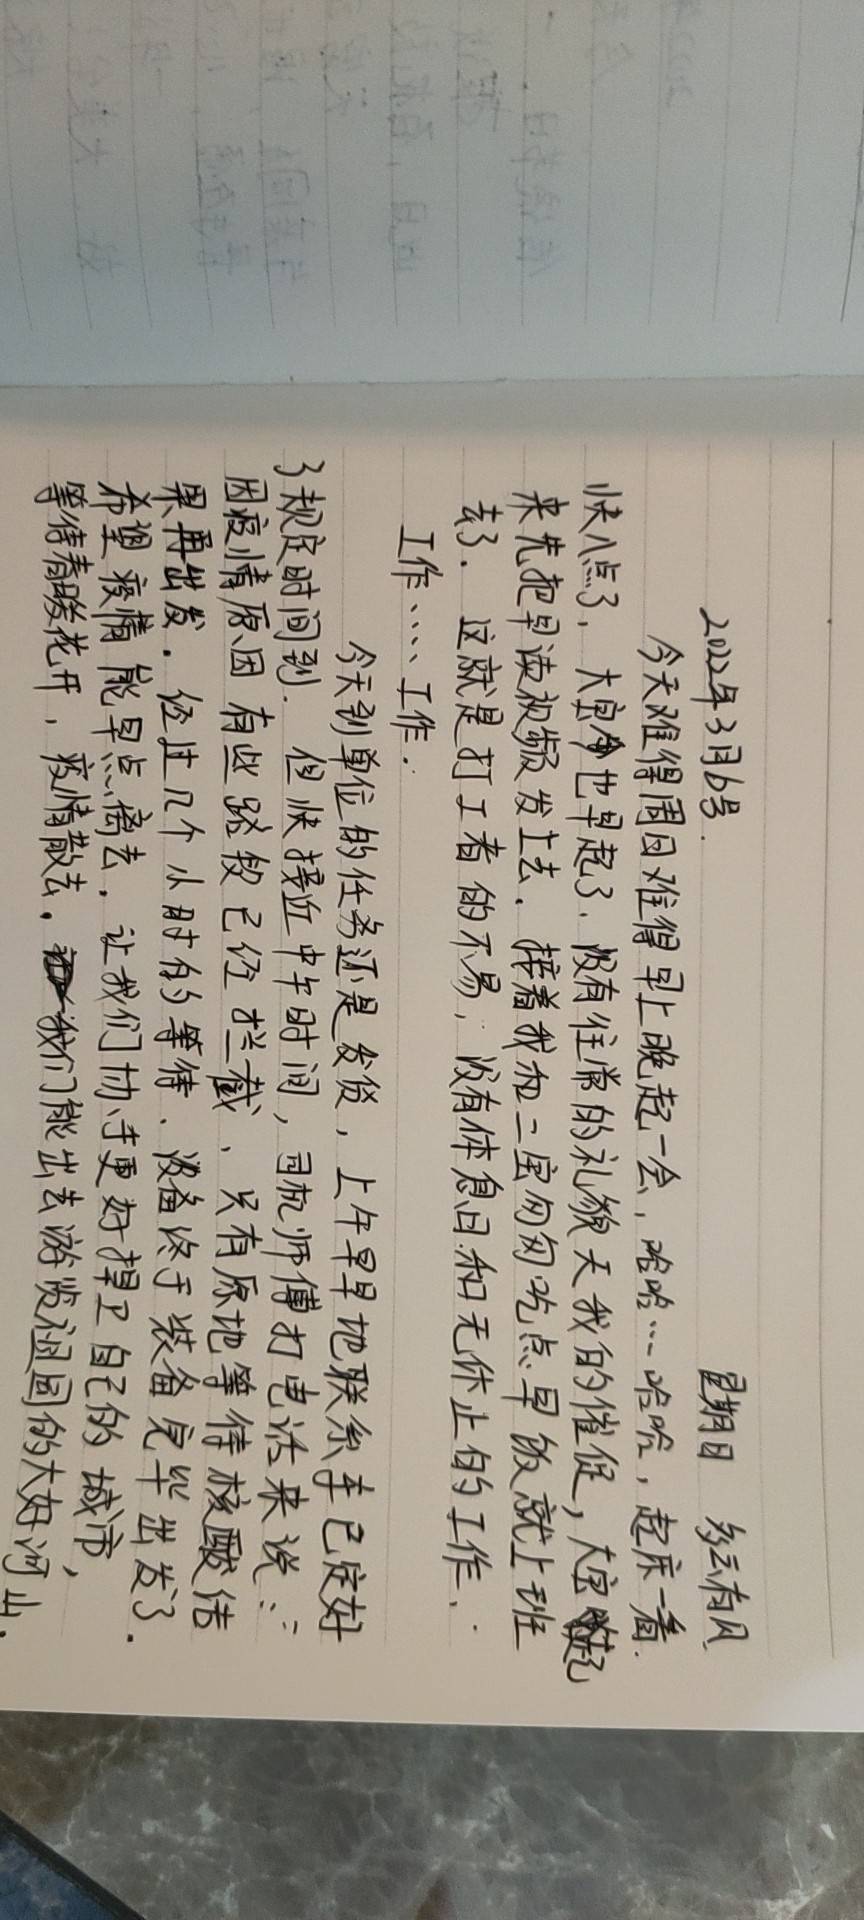 2022年3月6号. 星期日 多云有风
今天难得周日难得早上晚起一会,哈哈…哈哈,起床一看.
快八点了,大宝今也早起了.没有往常的礼貌天我的催促,大宝起
来先把早读视频发上去.接着我和二宝匆匆吃点早饭就上班
去了. 这就是打工者的不易;没有休息日.和无休止的工作..
工作....工作.
今天到单位的任务还是发货,上午早早地联系车已定好
了规定时间到. 但快接近中午时间,司机师傅打电话来说:
因疫情原因 有些路段已经拦截,只有原地等待核酸结
果再出发.经过几个小时的等待.设备终于装备完毕出发了.
希望疫情能早点离去.让我们协手更好捍卫自己的城市,
等待春暖花开,疫情散去.我们能出去游览祖国的大好河山.